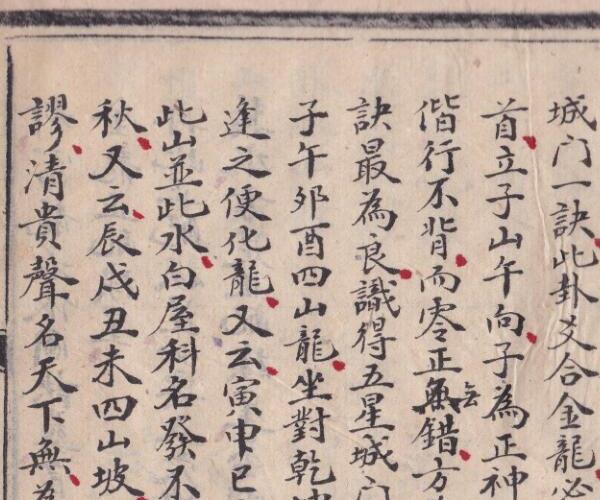 城门一訣此卦爻合金龍必
首立子山午向子為正神
偕行不背而零正無錯方
訣最為良識得五星城门
子午夘酉四山龍坐對乾坤
逢之便化龍又云寅申巳
此山並此水白屋科名發不
秋又云辰戌丑未四山坡
謬清貴聲名天下無